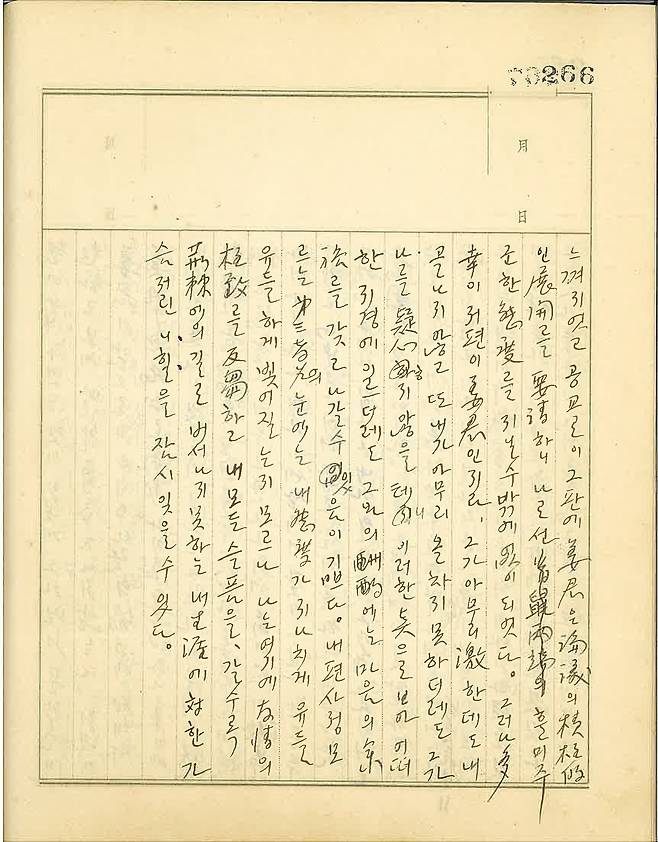 266
月
日
느껴지엇고 공교로이 그판에 姜君은 論議의
인 展開를 要請하니 나로선 首鼠兩端의 흘미주
군한 態度를 지닐수밖에 없이 되엇다. 그러나 多
幸이 저편이 姜君인지라, 그가 아무리 激한데도 내
골나지 않고 또 내가 아무리 올차지 못하더래도 그가
나를 疑心하지 않을테니 이러한 뜻으로 보아 어떠
한 지경에 이르더래도 그와의 酬酌에는 마음의 余
裕를 갖고 나갈수 있음이 기쁘다. 내편 사정 모
르는 第三者의 눈에는 내 態度가 지나치게 유들
유들하게 빛어질는지 모르나 나는 여기에 友情의
極致를 反芻하고 내 모든 슬픔을, 갈수록
荊棘에의 길로 벗어나지 못하는 내 生涯에 対한 가
슴저린 니힐을 잠시 잊을수 있다.